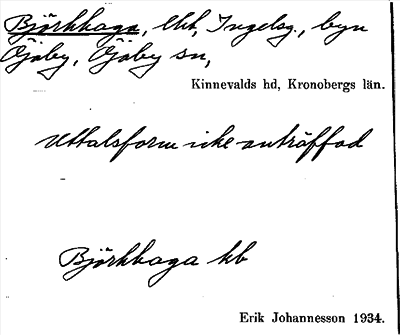 Björkhaga, lht, Ingelsg., byn
Öjaby, Öjaby sn,
Kinnevalds hd, Kronobergs län.
Uttalsform icke anträffad
Björkhaga hb
Erik Johannesson 1934.